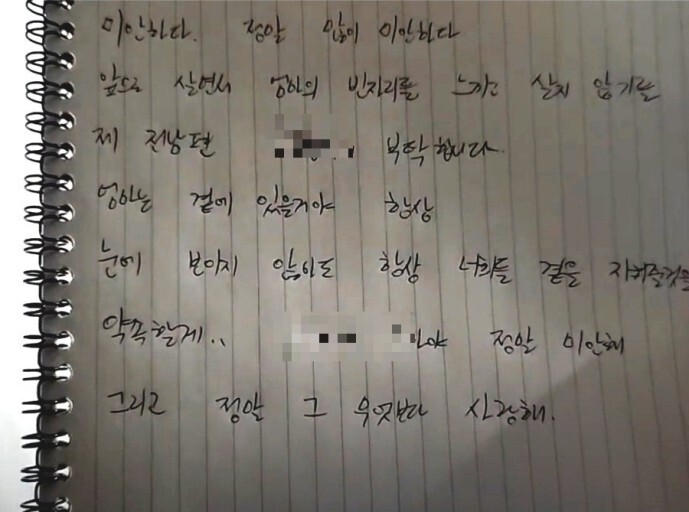 미안하다. 정말 많이 미안하다
앞으로 살면서 엄마의 빈자리를 느끼고 살지 않기를
제 전남편 부탁합니다.
엄마는 곁에 있을거야 항상
눈에 보이지 않아도 항상 너희들 곁을 지켜줄것을
약속할게..  야 정말 미안해
그리고 정말 그 무엇보다 사랑해.